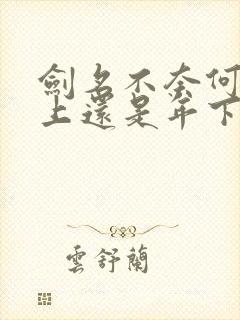 劍名不奈何
上還是年下
雲舒蘭